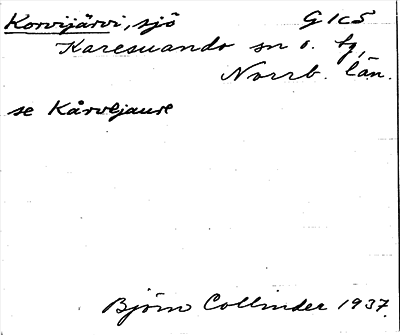 Korvijärvi, sjö G1c5
Karesuando sn o. tg,
Norrb. län.
se Kårvejaure
Björn Collinder 1937.